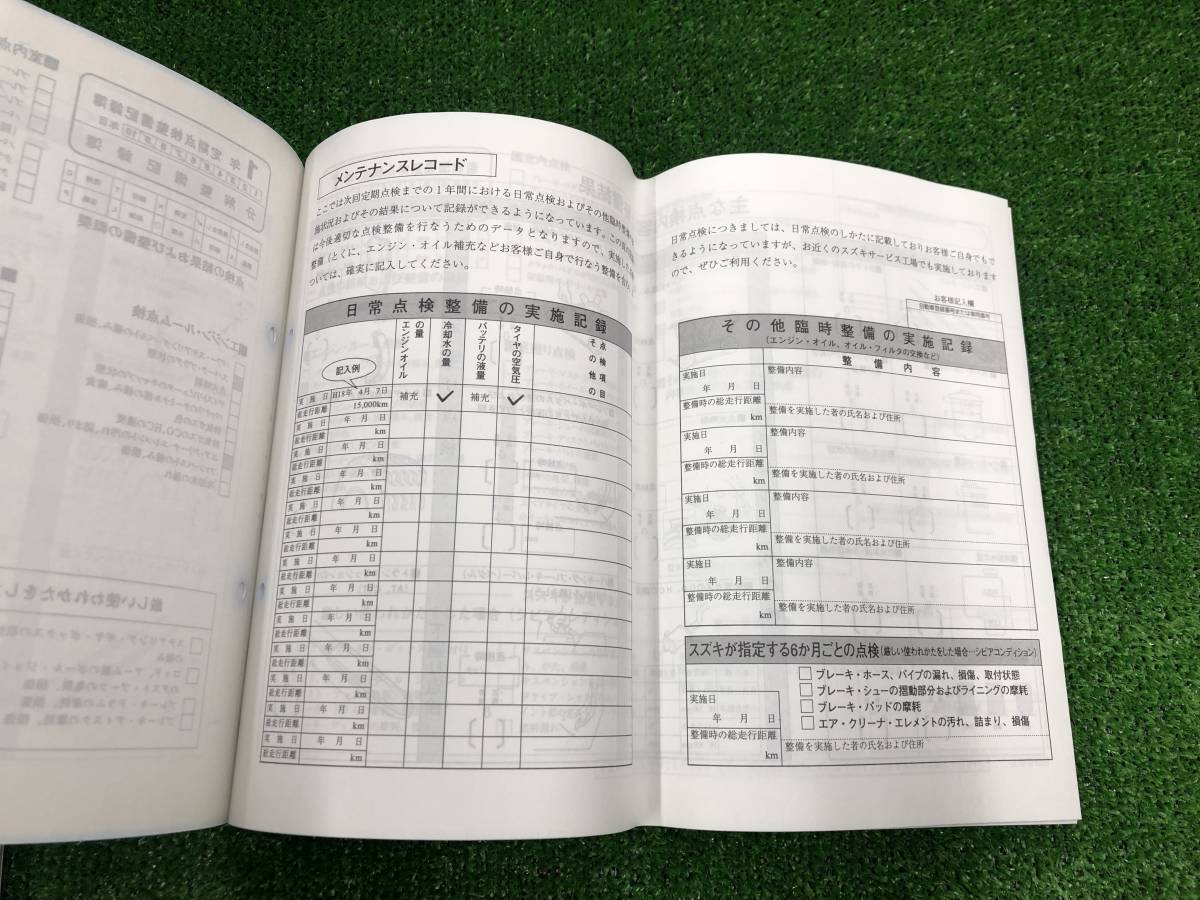 メンテナンスレコード
ここでは次回定期点検までの1年間における日常点検およびその他臨時整備
施状況およびその結果について記録ができるようになっています。この
は今後適切な点検整備を行なうためのデータとなりますので、実施した
整備(とくに、エンジン・オイル補充などお客様ご自身で行なう整備を
ついては、確実に記入してください。
日常点検整備の実施記録
エンジンオイルの量
冷却水の量
バッテリの液量
タイヤの空気圧
その他の点検項目
記入例
実施日 H18年 4月 7日 補充 ✓ 補充 ✓
総走行距離 15,000km
実施日 年 月 日
総走行距離 km
実施日 年 月 日
総走行距離 km
実施日 年 月 日
総走行距離 km
実施日 年 月 日
総走行距離 km
実施日 年 月 日
総走行距離 km
実施日 年 月 日
総走行距離 km
実施日 年 月 日
総走行距離 km
実施日 年 月 日
総走行距離 km
実施日 年 月 日
総走行距離 km
実施日 年 月 日
総走行距離 km
実施日 年 月 日
総走行距離 km
実施日 年 月 日
総走行距離 km
日常点検につきましては、日常点検のしかたに記載しておりお客様ご自身でもで
きるようになっていますが、お近くのスズキサービス工場でも実施しております
ので、ぜひご利用ください。
お客様記入欄
自動車登録番号または車両番号
その他臨時整備の実施記録
(エンジン・オイル、オイル・フィルタの交換など)
整備内容
実施日 整備内容
年 月 日
整備時の総走行距離 整備を実施した者の氏名および住所
km
実施日 整備内容
年 月 日
整備時の総走行距離 整備を実施した者の氏名および住所
km
実施日 整備内容
年 月 日
整備時の総走行距離 整備を実施した者の氏名および住所
km
実施日 整備内容
年 月 日
整備時の総走行距離 整備を実施した者の氏名および住所
km
スズキが指定する6か月ごとの点検(厳しい使われかたをした場合…シビアコンディション)
ブレーキ・ホース、パイプの漏れ、損傷、取付状態
ブレーキ・シューの摺動部分およびライニングの摩耗
ブレーキ・パッドの摩耗
エア・クリーナ・エレメントの汚れ、詰まり、損傷
実施日
年 月 日
整備時の総走行距離 整備を実施した者の氏名および住所
km